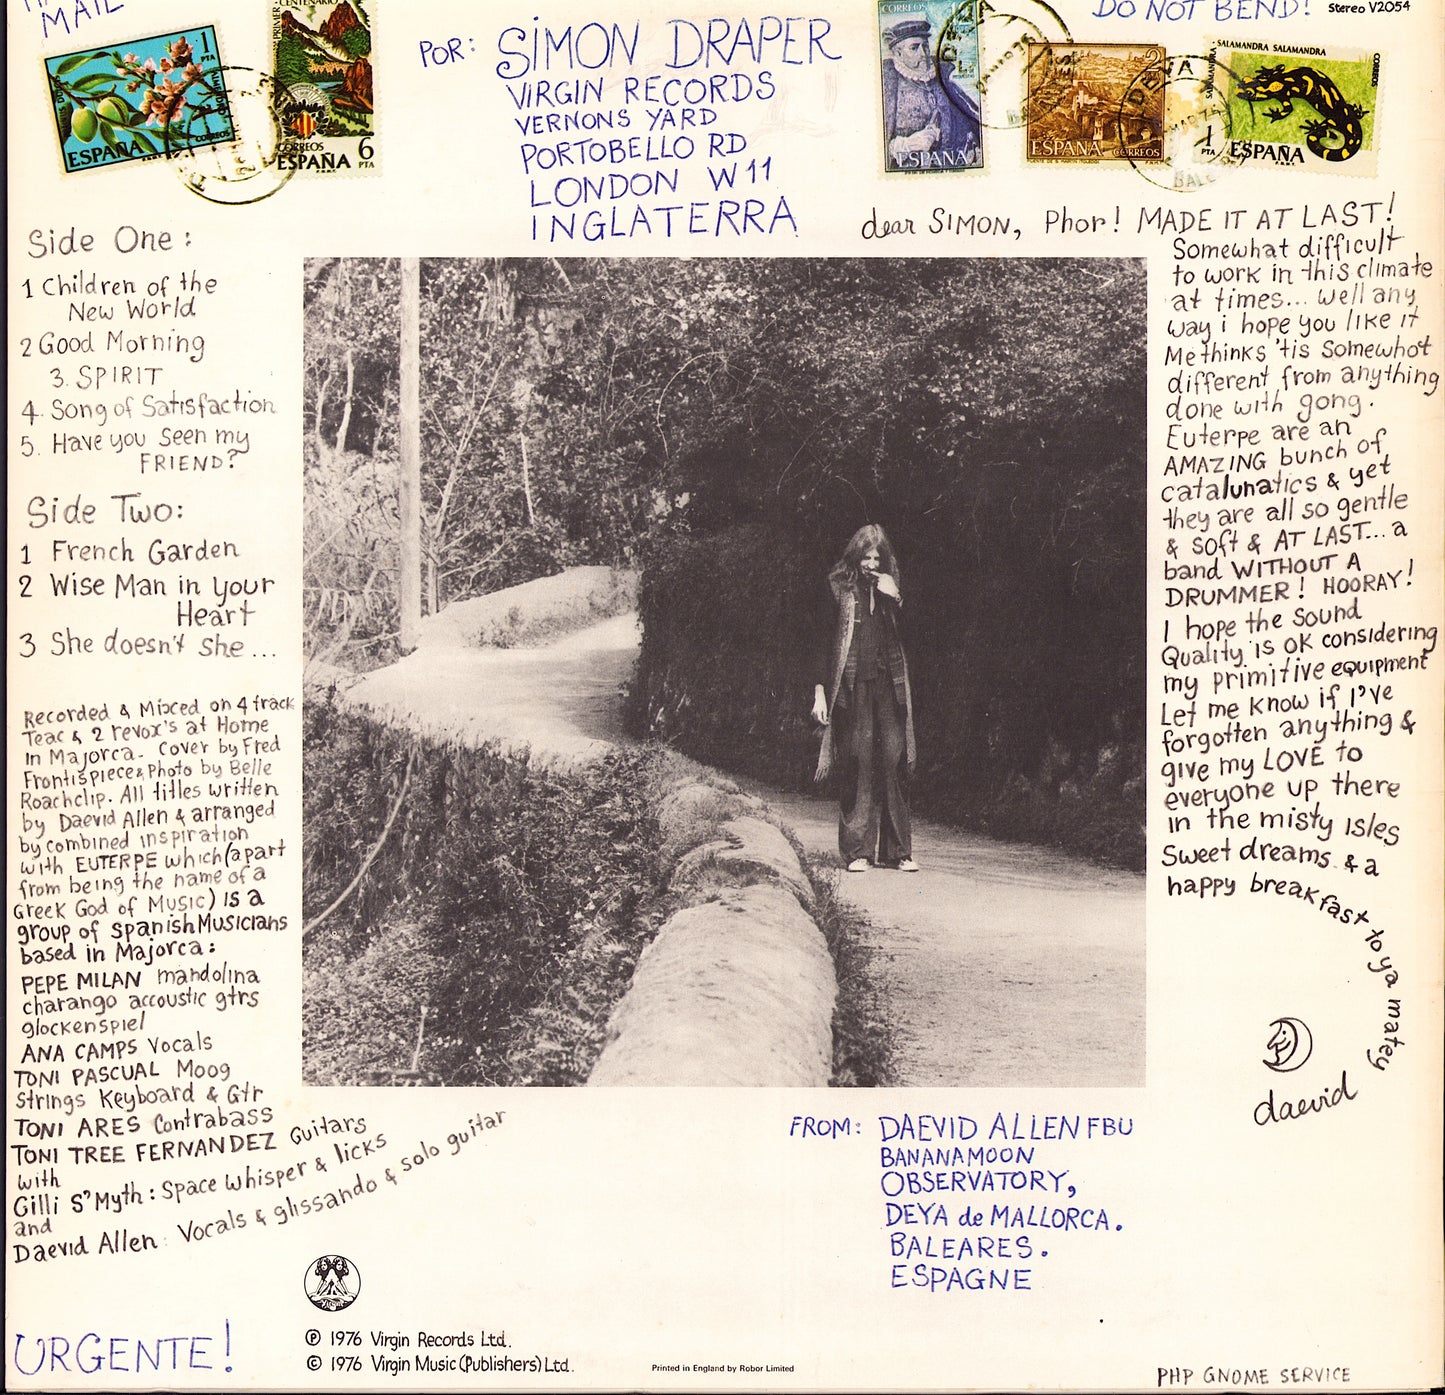 MAIL
POR: SIMON DRAPER
VIRGIN RECORDS
VERNONS YARD
PORTOBELLO RD
LONDON W11
INGLATERRA
DO NOT BEND!
Stereo V2054
1
PTA
CORREOS
ESPAÑA
CENTENARIO
CORREOS
ESPAÑA 6
PTA
CORREOS
ESPAÑA
2
ESPAÑA CORREOS
DEYA
SALAMANDRA SALAMANDRA
SALAMANDRA
CORREOS
1
PTA
ESPAÑA
Side One:
1 Children of the
New World
2 Good Morning
3. SPIRIT
4. Song of Satisfaction
5. Have you seen my
FRIEND?
Side Two:
1 French Garden
2 Wise Man in your
Heart
3 She doesn't she...
Recorded & Mixed on 4 track
Teac & 2 revox's at Home
in Majorca. Cover by Fred
Frontispiece & Photo by Belle
Roachclip. All titles written
by Daevid Allen & arranged
by combined inspiration
with EUTERPE which (apart
from being the name of a
Greek God of Music) is a
group of Spanish Musicians
based in Majorca:
PEPE MILAN mandolina
charango accoustic gtrs
glockenspiel
ANA CAMPS Vocals
TONI PASCUAL Moog
Strings Keyboard & Gtr
TONI ARES Contrabass
TONI TREE FERNANDEZ Guitars
with
Gilli S'Myth: Space whisper & licks
and
Daevid Allen: Vocals & glissando & solo guitar
dear SIMON, Phor! MADE IT AT LAST!
Somewhat difficult
to work in this climate
at times... well any
way i hope you like it
Me thinks 'tis somewhot
different from anything
done with gong.
Euterpe are an
AMAZING bunch of
catalunatics & yet
they are all so gentle
& soft & AT LAST... a
band WITHOUT A
DRUMMER! HOORAY!
I hope the sound
Quality is OK considering
my primitive equipment
Let me know if I've
forgotten anything &
give my LOVE to
everyone up there
in the misty isles
Sweet dreams & a
happy breakfast to ya matey
daevid
FROM: DAEVID ALLEN FBU
BANANAMOON
OBSERVATORY,
DEYA de MALLORCA.
BALEARES.
ESPAGNE
URGENTE!
℗ 1976 Virgin Records Ltd.
© 1976 Virgin Music (Publishers) Ltd.
Printed in England by Robor Limited
PHP GNOME SERVICE